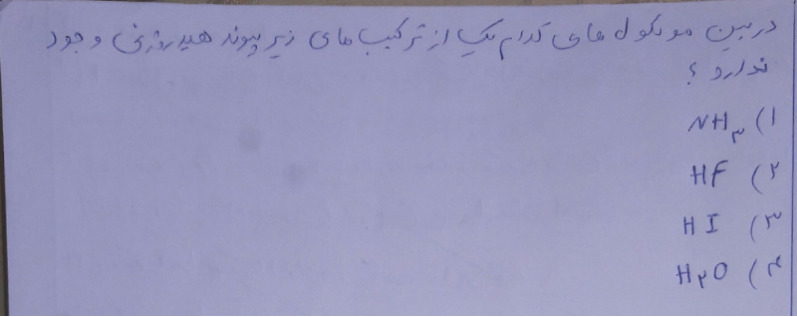 در بین مولکول های کدام یک از ترکیب های زیر پیوند هیدروژنی وجود
ندارد ؟
۱) NH۳
۲) HF
۳) HI
۴) H۲O